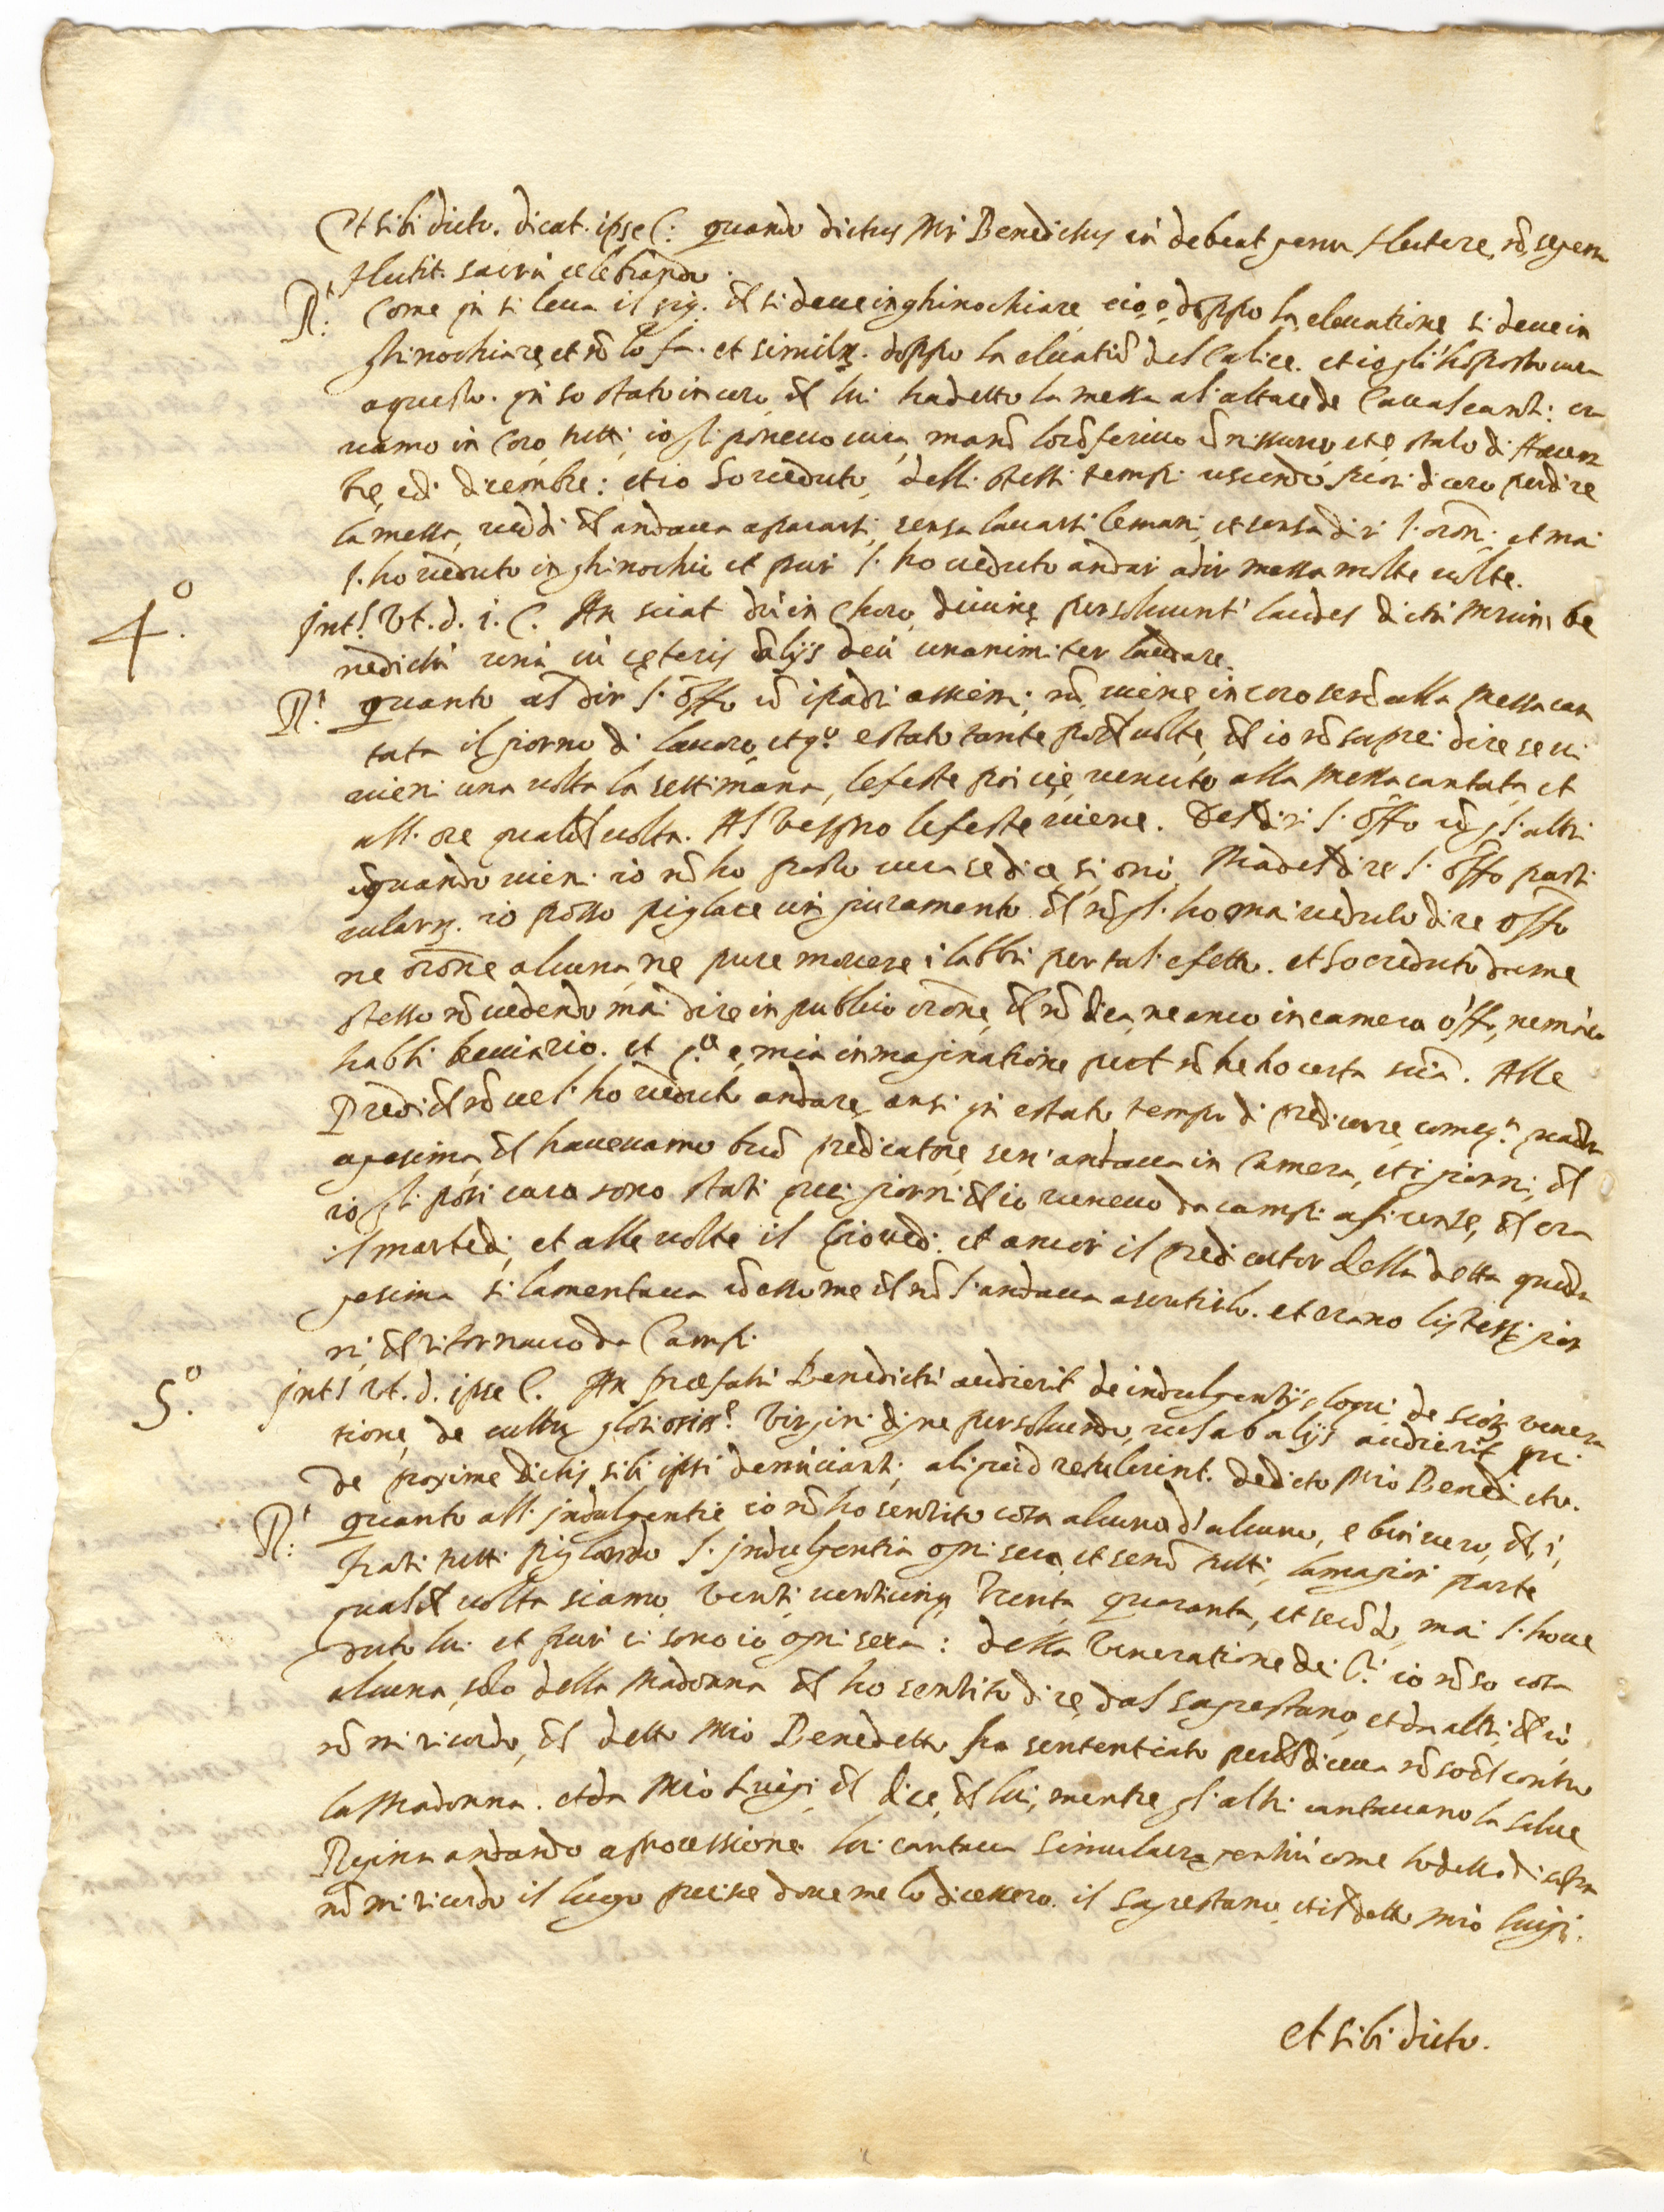 Et sibi dicto. dicat ipse C: quando dictus Mr Benedictus cū debeat genu flectere, nō se genu
flectit. sacrū celebrando.
R.t Come qn si leua il sig. ch̄ si deue inghinochiare, cioe doppo la eleuatione si deue in
ghinochiare, et nō lo fa. et similr. doppo la eleuatiō del Calice. et io gli ho posto cura
a questo. qn so stato in coro, ch̄ lui ha detto la messa al altare de Caualcanti: era
uamo in Coro tutti, io gli poneuo cura, ma nō lo cōferiuo cō nissuno, et e stato di
e di dicembre: et io ho ueduto, delli stessi tempi uscendo fuori di coro per dire
la messa, ueddi ch̄ andaua a pararsi, senza lauarsi le mani, et senza dir l'orōni, et mai
l'ho ueduto inghinochiē et pur l'ho ueduto andar a dir messa molte uolte.
4.o Int.s Vt. d. i. C. An sciat dū in Choro, diuine persoluunt' laudes dictū Mrum be
nedictū unā cū ceteris alijs deū unanimiter laudare.
R.t quanto al dir l'offo cō i padri assiemi, nō uiene in coro se nō alla Messa can
tata il giorno di lauoro, et q.o e stato tante poch̄ uolte, ch̄ io nō saprei dire se ui
uieni una uolta la settimana, le feste poi uie uenuto alla Messa cantata, et
all'ore qualch̄ uolta. Al Vespro le feste uiene. Del dir l'offo cō gl'altri
quando uieni io nō ho posto cura se dice, si o nò, Ma del dire l'offo parti
cularm. io posso pigliare un giuramento ch̄ nō gl'ho mai ueduto dire offo
ne orōne alcuna, ne pure mouere i labbri per tal efetto. et ho creduto da me
stesso nō uedendo mai dire in publico orōne, ch̄ nō dica, ne anco in camera offo, ne māco
habbi breuiario. et q.a e mia immaginatione perch̄ nō ne ho certa sciā. Alle
Predich̄ nō uel'ho ueduto andare, anzi qn e stato tempo di predicarre, come q.a quadra
agesima, ch̄ haueuamo buō predicatore, sen'andaua in Camera, et i giorni, ch̄
io gli posi cura sono stati quei giorni ch̄ io ueneuo da campi a firenze, ch̄ era
il martedi, et alle uolte il Giouedi. et ancor il predicator della detta quadra
gesima si lamentaua cō esso me ch̄ nō l'andaua a scutirlo. et erano li istessi gior
ni, ch̄ ritornauo da Campi.
5.o Int.s Vt. d. ipse C. An praefatū Benedictū audierit de indulgentijs loqui de scōr. venera
tione, de cultu gloriosiss.e Virgini digne persoluendo, uel ab alijs audierit qui
de proxime dictis sibi ipsi denūciant, aliquid retulerint. de dicto Mro Benedicto.
R.t quanto all'Indulgentie io nō ho sentito cosa alcuna d'alcuno, e ben uero, ch̄, i,
frati tutti pigliando l'Indulgentia ogni sera, et se nō tutti, la magior parte
qualch̄ uolta siamo, venti, uenticinq, trenta, quaranta, et secōdo, mai l'ho ue
duto lui et pur ci sono io ogni sera: della Veneratione de S.ti io nō so cosa
alcuna, solo della Madonna ch̄ ho sentito dire, dal sagrestano, et da altri, ch̄ io
nō mi ricordo, ch̄ detto Mro Benedetto ha sententiato perch̄ diceua nō so ch̄ contro
la Madonna. et da Mro Luigi, ch̄ dice, ch̄ lui, mentre gl'altri cantauano la Salue
Regina andando a processione lui cantaua simulacra gentiū come ho detto di sopra
nō mi ricordo il luogo precise doue me lo dicessero. il sagrestano, et il detto Mro Luigi.
et sibi dicto.